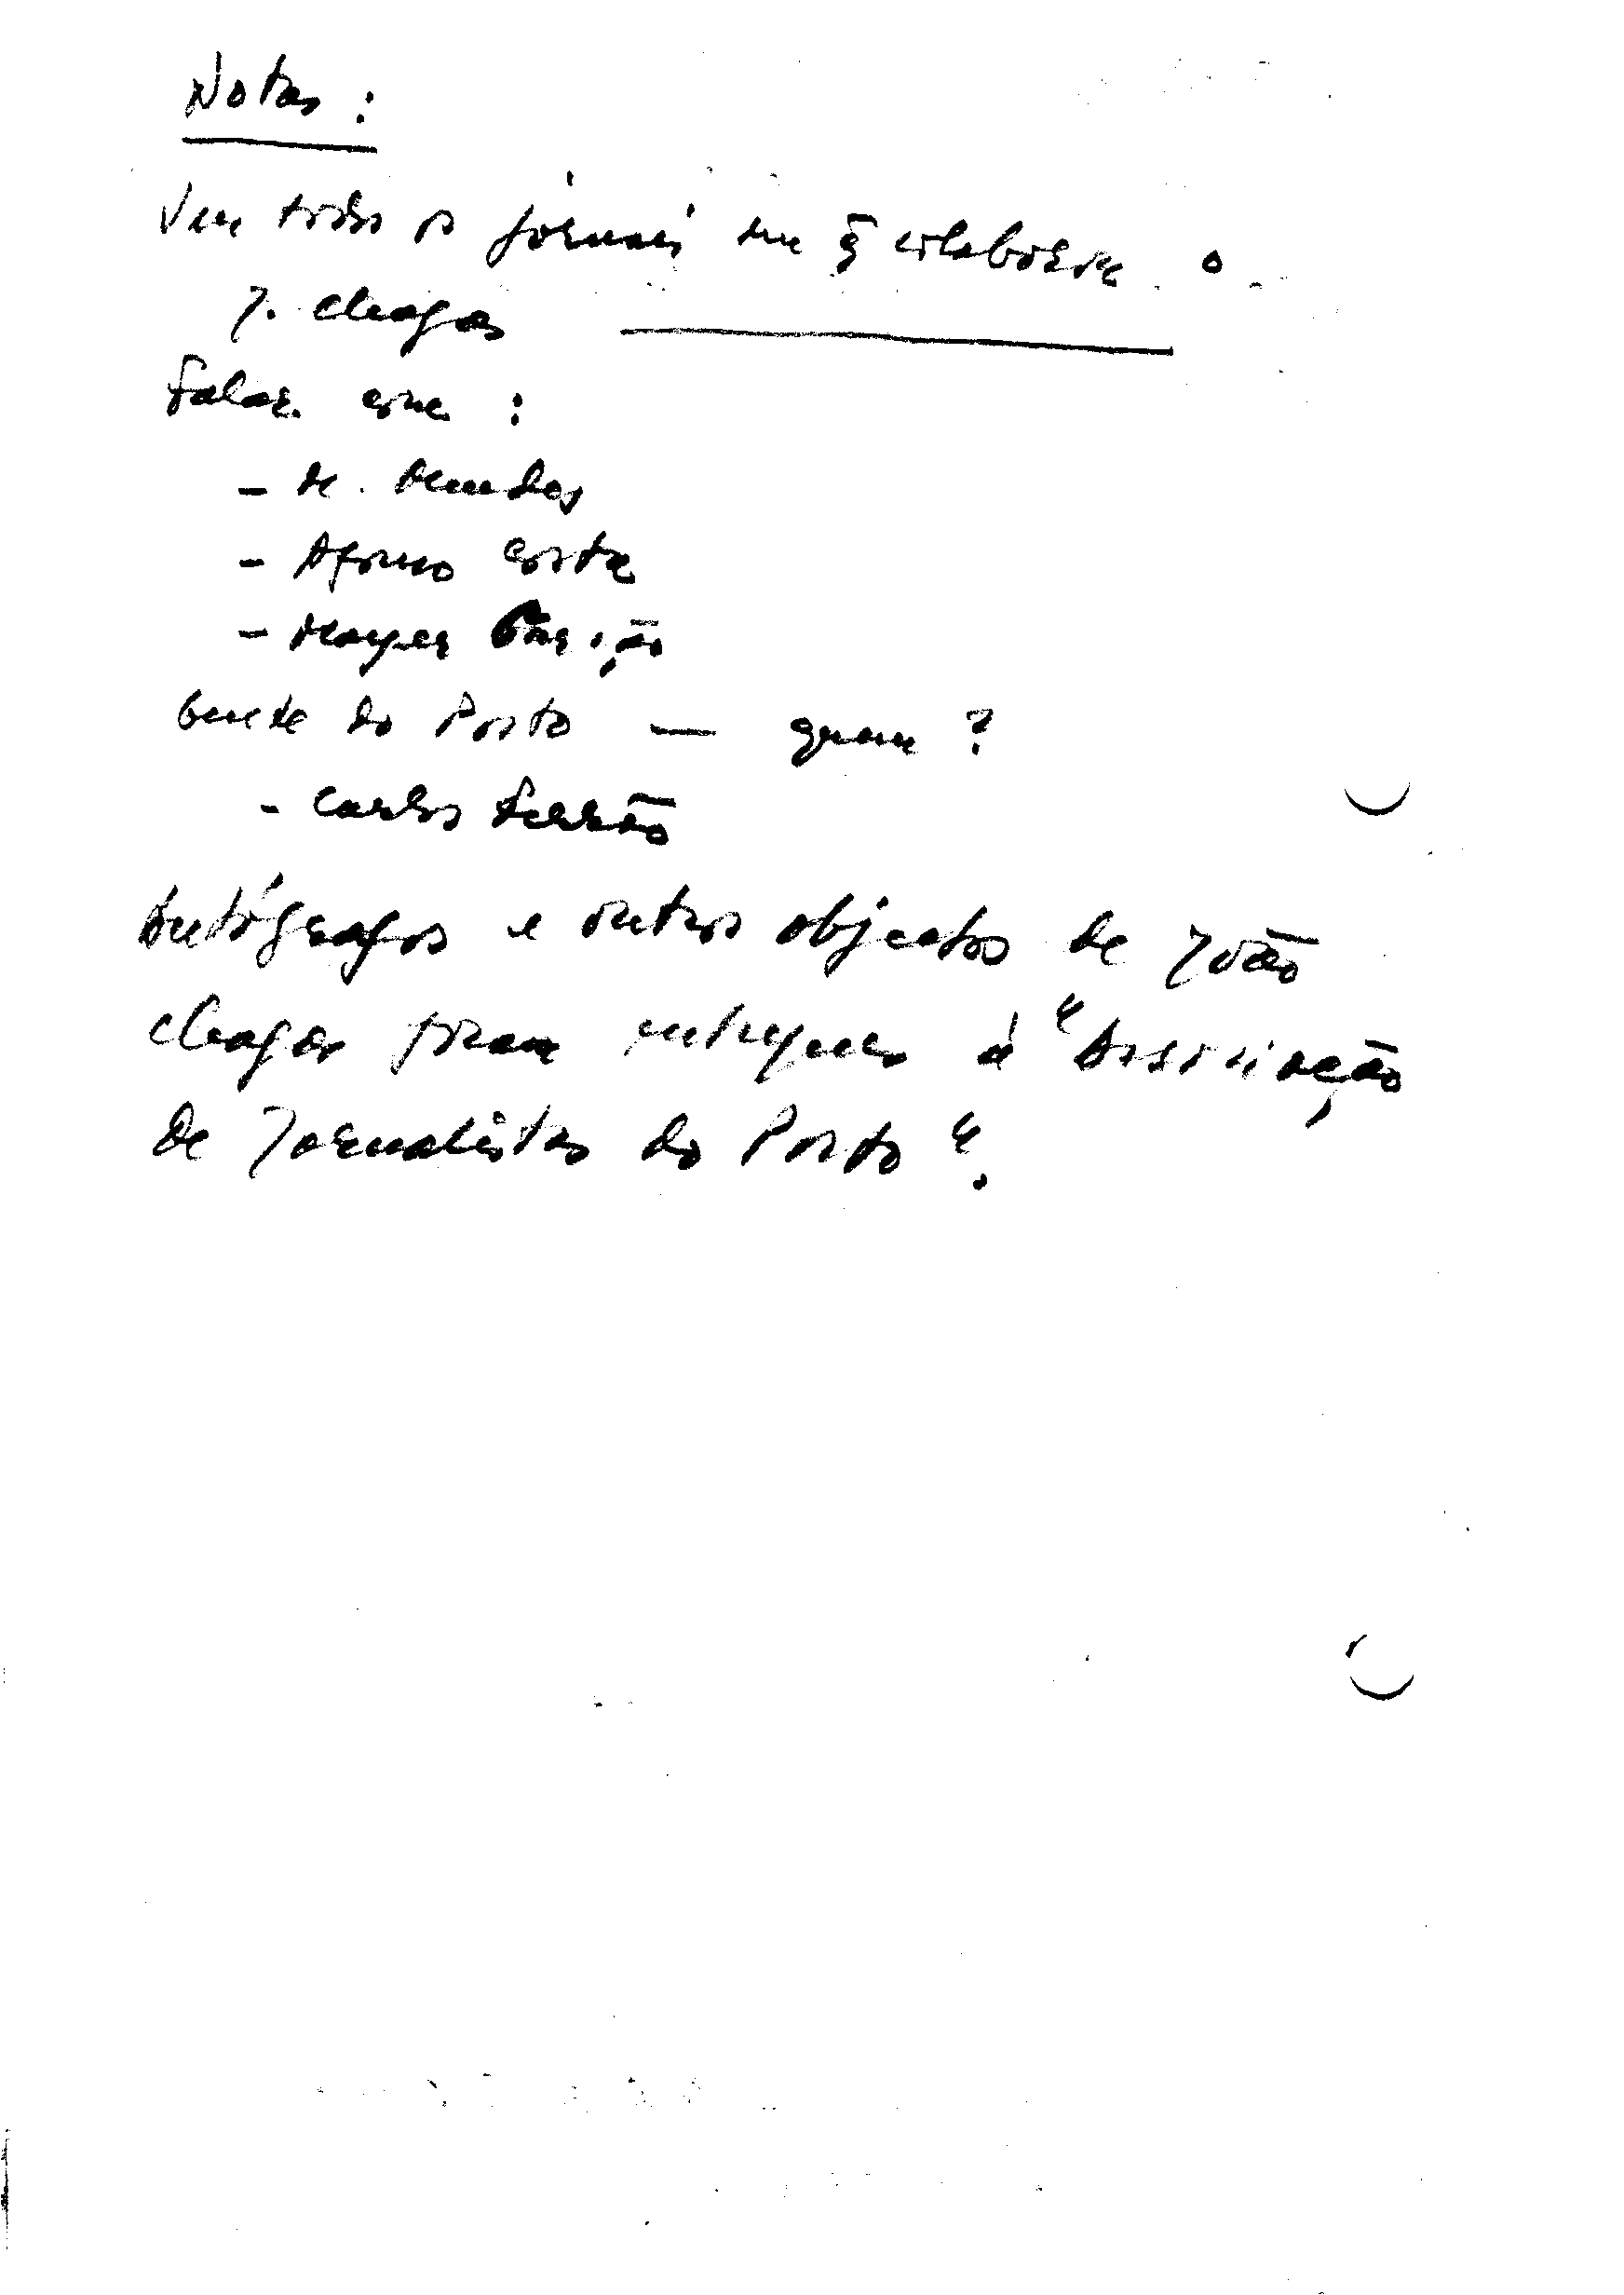 Notas :
Ver todos os jornais em q̄ colaborou o
J. Chagas
Falar com :
- M. Mendes
- Afonso Costa
- Mayer Garção
Gente do Porto — quem ?
- Carlos Ferrão
Autógrafos e outros objectos de João
Chagas foram entregues à "Associação
de Jornalistas do Porto".